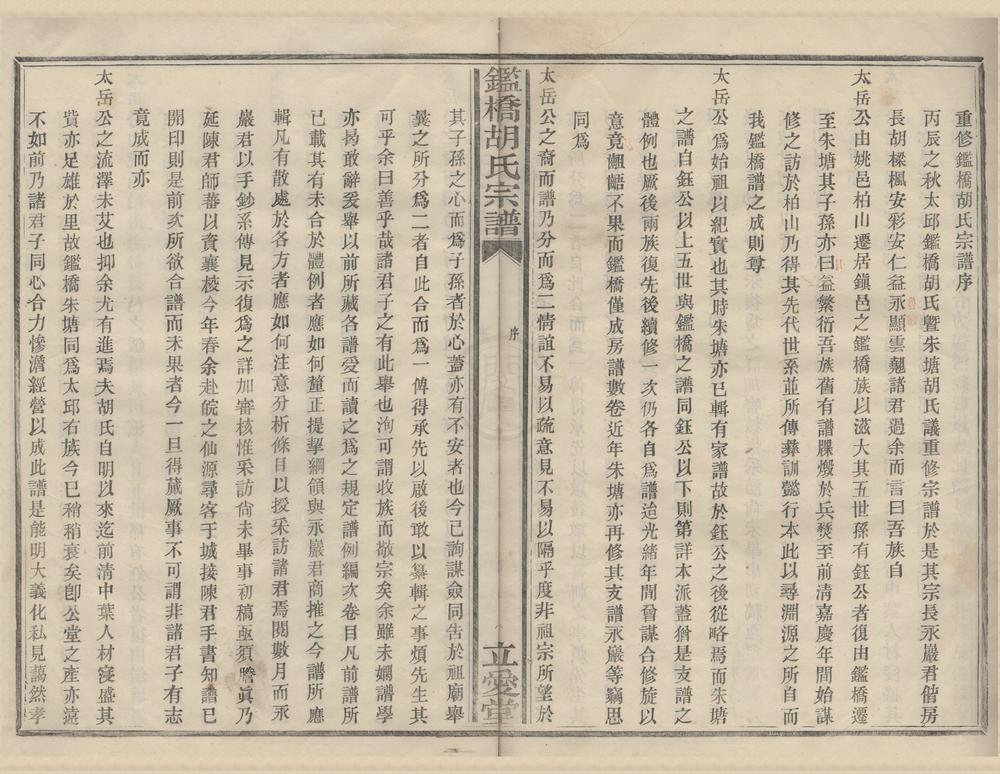 重修鑑橋胡氏宗譜序
丙辰之秋太邱鑑橋胡氏暨朱塘胡氏議重修宗譜於是其宗長永巖君偕房
長胡樑楓安彩安仁益永顯雲翹諸君過余而言曰吾族自
太岳公由姚邑柏山遷居鎭邑之鑑橋族以滋大其五世孫有鈺公者復由鑑橋遷
至朱塘其子孫亦曰益繁衍吾族舊有譜牒燬於兵燹至前淸嘉慶年間始謀
修之訪於柏山乃得其先代世系並所傳彝訓懿行本此以尋淵源之所自而
我鑑橋譜之成則尊
太岳公爲始祖以紀實也其時朱塘亦已輯有家譜故於鈺公之後從略焉而朱塘
之譜自鈺公以上五世與鑑橋之譜同鈺公以下則第詳本派蓋猶是支譜之
體例也厥後兩族復先後續修一次仍各自爲譜迨光緒年間曾謀合修旋以
意見齟齬不果而鑑橋僅成房譜數卷近年朱塘亦再修其支譜永巖等竊思
同爲
太岳公之裔而譜乃分而爲二情誼不易以疏意見不易以隔乎度非祖宗所望於
鑑橋胡氏宗譜
序
立愛堂
其子孫之心而爲子孫者於心蓋亦有不安者也今已詢謀僉同告於祖廟舉
曩之所分爲二者自此合而爲一傳得承先以啟後敢以纂輯之事煩先生其
可乎余曰善乎哉諸君子之有此舉也洵可謂收族而敬宗矣余雖未嫺譜學
亦曷敢辭爰舉以前所藏各譜受而讀之爲之規定譜例編次卷目凡前譜所
已載其有未合於體例者應如何釐正提挈綱領與永巖君商搉之今譜所應
輯凡有散處於各方者應如何注意分析條目以授采訪諸君焉閱數月而永
巖君以手鈔系傳見示復爲之詳加審核惟采訪尙未畢事初稿亟須謄眞乃
延陳君師蕃以資襄棱今年春余赴皖之仙源尋客于城接陳君手書知譜已
開印則是前次所欲合譜而未果者今一旦得蕆厥事不可謂非諸君子有志
竟成而亦
太岳公之流澤未艾也抑余尤有進焉夫胡氏自明以來迄前淸中葉人材寖盛其
貲亦足雄於里故鑑橋朱塘同爲太邱右族今已稍稍衰矣卽公堂之產亦遠
不如前乃諸君子同心合力慘澹經營以成此譜是能明大義化私見藹然孝